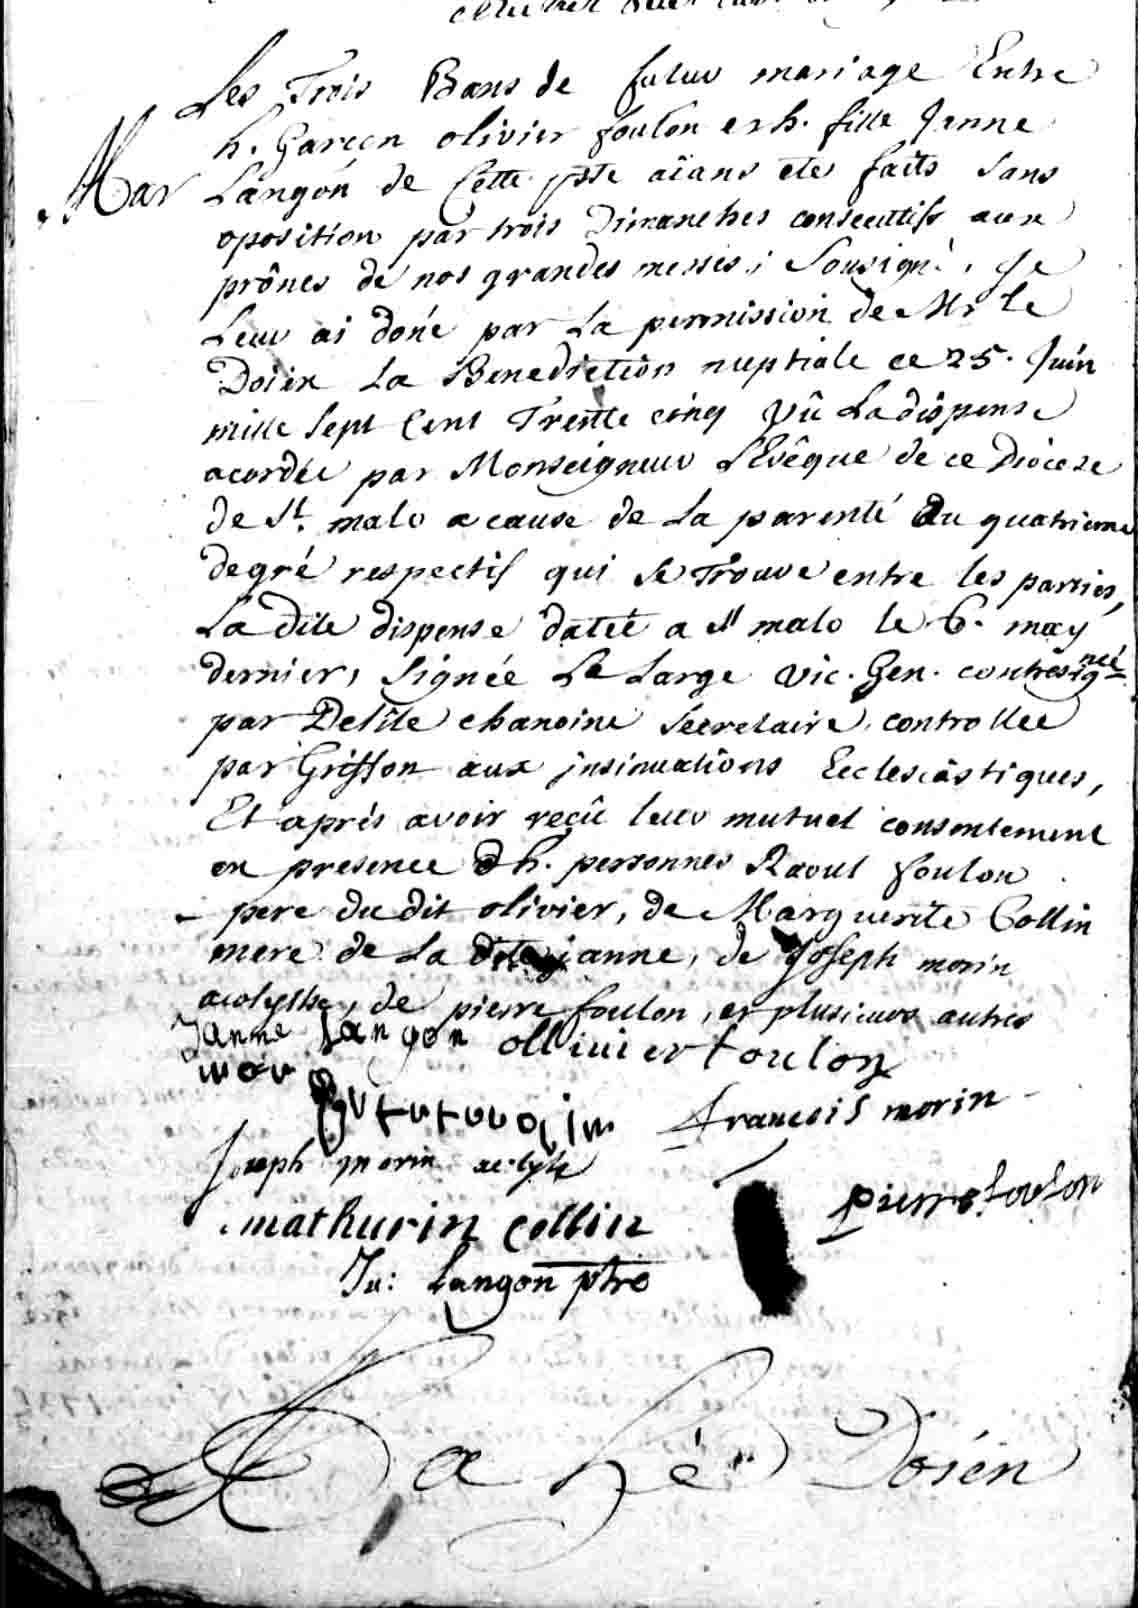 Les Trois Bans de futur mariage Entre
h. Garçon olivier foulon et h. fille Janne
Mar
Langon de Cette psse aïans eté faits sans
oposition par trois Dimanches consecutifs aux
prônes de nos grandes messes, Sousigné, Je
Leur ai doné par La permission de Mr le
Doïen La Benediction nuptiale ce 25. Juin
mille Sept Cent Trente cinq Vû La dispense
acordée par Monseigneur L'Evêque de ce Diocese
de St. malo a cause de La parenté du quatrieme
degré respectif qui se Trouve entre les parties,
La dite dispense datée a st malo le 6. may
dernier, Signée Le Large vic. Gen. contresignée
par Delile chanoine Secretaire, controllée
par Griffon aux insinuations Ecclesiastiques,
Et aprés avoir reçû leur mutuel consentement
en presence d'h. personnes Raoul foulon
pere du dit olivier, de Marguerite Collin
mere de La dite janne, de Joseph morin
acolythe, de pierre foulon, et plusieurs autres
Janne Langon ollivier foulon
francois morin
Joseph morin acolyte
pierre foulon
mathurin collin
Ju: Langon ptre
Doïén